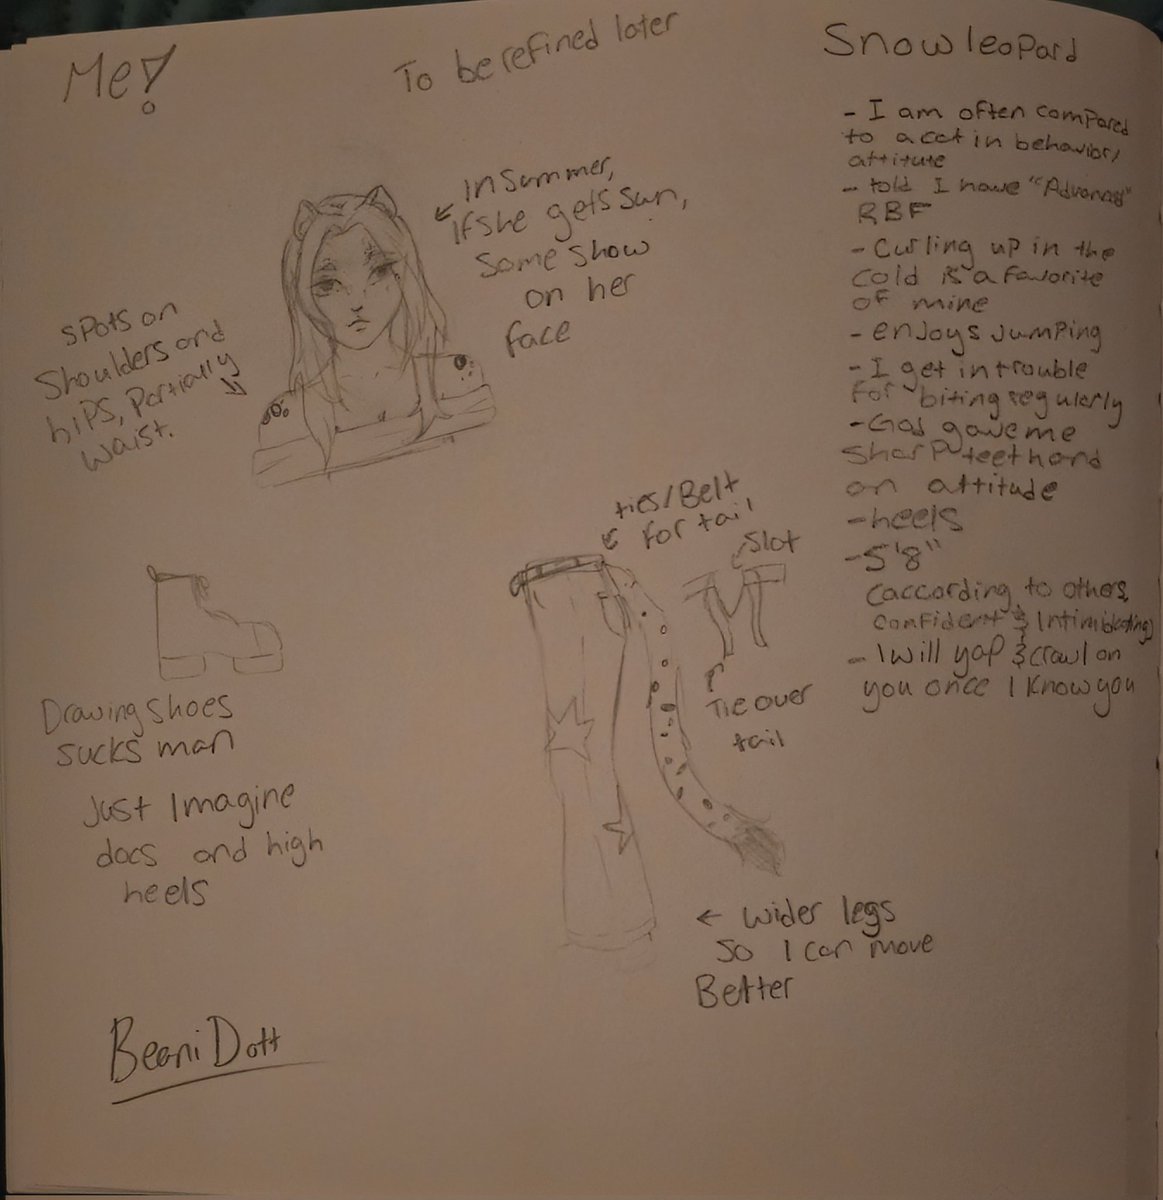 Me!
To be refined later
Snow leopard
- I am often compared
to a cat in behavior/
attitude
- told I have "Advanced"
RBF
- Curling up in the
cold is a favorite
of mine
- enjoys jumping
- I get in trouble
for biting regularly
- God gave me
sharp teeth and
an attitude
- heels
- 5'8"
(according to others,
confident & intimidating)
- I will yap & crawl on
you once I know you
← In Summer,
if she gets sun,
some show
on her
face
spots on
shoulders and
hips, partially
waist.
ties/Belt
for tail
Slot
Tie over
tail
Drawing shoes
sucks man
Just Imagine
docs and high
heels
← wider legs
so I can move
Better
Beani Dott